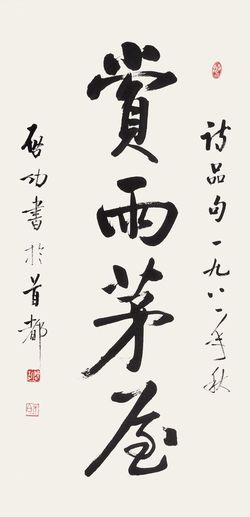 诗品句一九八一年秋
賞雨茅屋
启功書於首都